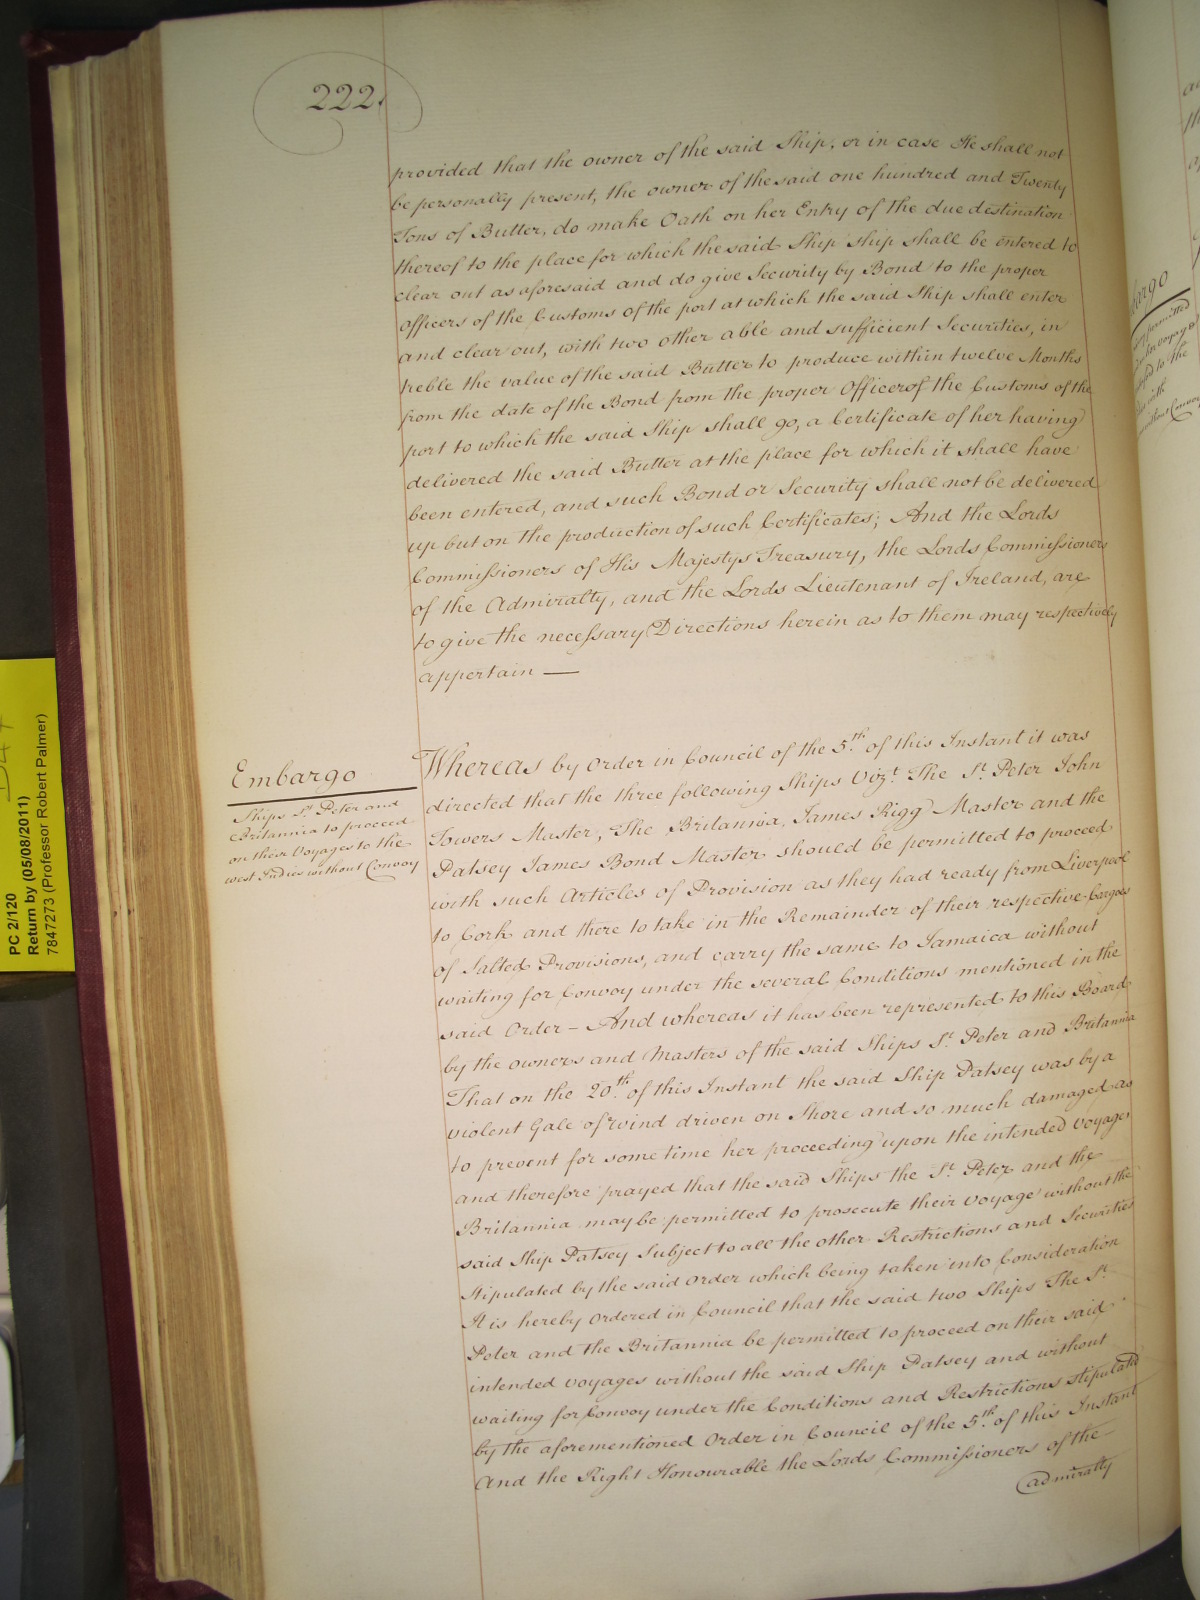 222.
provided that the owner of the said Ship, or in case He shall not
be personally present, the owner of the said one hundred and Twenty
Tons of Butter, do make Oath on her Entry of the due destination
thereof to the place for which the said Ship ship shall be entered to
clear out as aforesaid and do give Security by Bond to the proper
officers of the Customs of the port at which the said Ship shall enter
and clear out, with two other able and sufficient Securities, in
treble the value of the said Butter to produce within twelve Months
from the date of the Bond from the proper Officer of the Customs of the
port to which the said Ship shall go, a Certificate of her having
delivered the said Butter at the place for which it shall have
been entered, and such Bond or Security shall not be delivered
up but on the production of such Certificates; And the Lords
Commissioners of His Majestys Treasury, the Lords Commissioners
of the Admiralty, and the Lords Lieutenant of Ireland, are
to give the necessary Directions herein as to them may respectively
appertain —
Embargo
Ships St. Peter and
Britannia to proceed
on their Voyages to the
west Indies without Convoy
Whereas by Order in Council of the 5th. of this Instant it was
directed that the three following Ships Vizt. The St. Peter John
Towers Master, The Britannia, James Rigg Master and the
Patsey James Bond Master should be permitted to proceed
with such Articles of Provision as they had ready from Liverpool
to Cork and there to take in the Remainder of their respective Cargoes
of Salted Provisions, and carry the same to Jamaica without
waiting for Convoy under the several Conditions mentioned in the
said Order – And whereas it has been represented to this Board
by the owners and Masters of the said Ships St. Peter and Britannia
That on the 20th. of this Instant the said Ship Patsey was by a
violent Gale of wind driven on Shore and so much damaged as
to prevent for some time her proceeding upon the intended Voyage,
and therefore prayed that the said Ships the St. Peter and the
Britannia may be permitted to prosecute their Voyage without the
said Ship Patsey Subject to all the other Restrictions and Securities
Stipulated by the said Order which being taken into Consideration
It is hereby Ordered in Council that the said two Ships The St.
Peter and the Britannia be permitted to proceed on their said
intended Voyages without the said Ship Patsey and without
waiting for Convoy under the Conditions and Restrictions stipulated
by the aforementioned Order in Council of the 5th. of this Instant
And the Right Honourable the Lords Commissioners of the
Admiralty
PC 2/120
Return by (05/08/2011)
7847273 (Professor Robert Palmer)